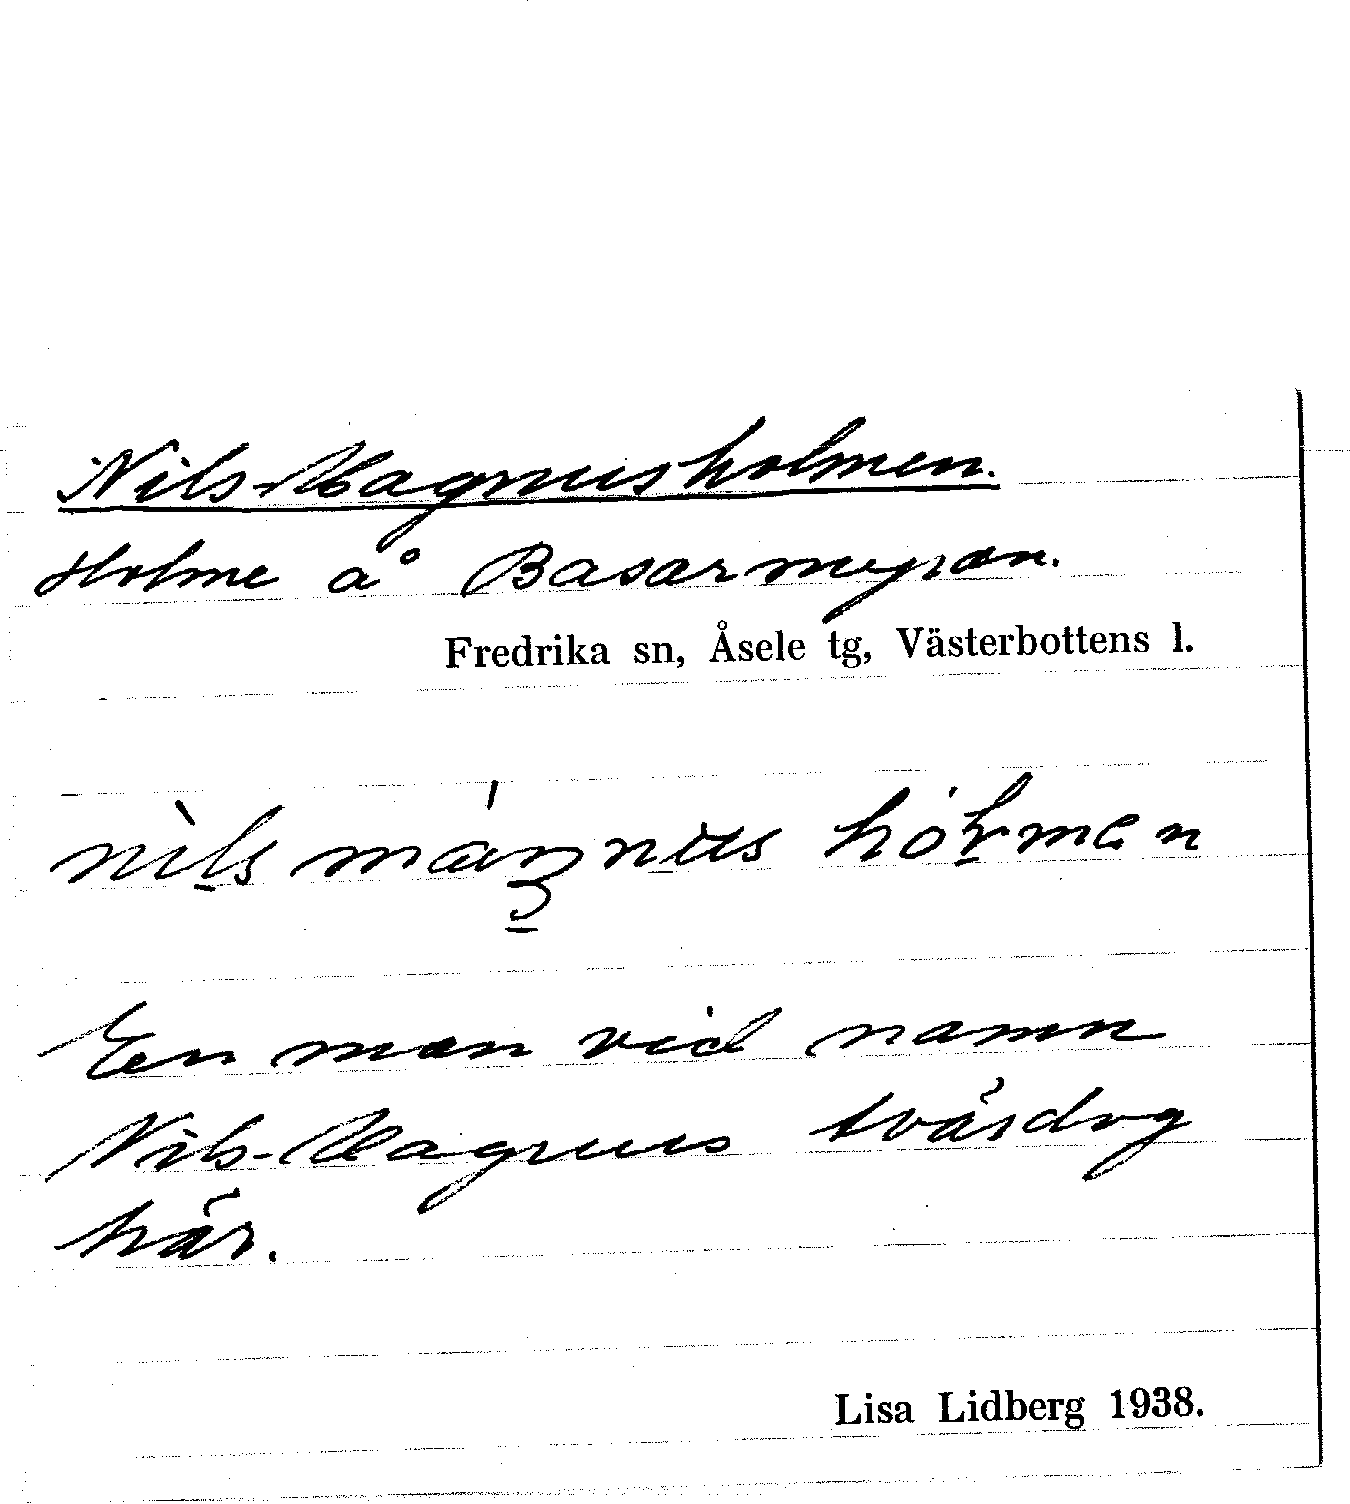 Nils-Magnusholmen.
Holme å Basarmyran.
Fredrika sn, Åsele tg, Västerbottens l.
En man vid namn
Nils-Magnus tvärdog
här.
Lisa Lidberg 1938.